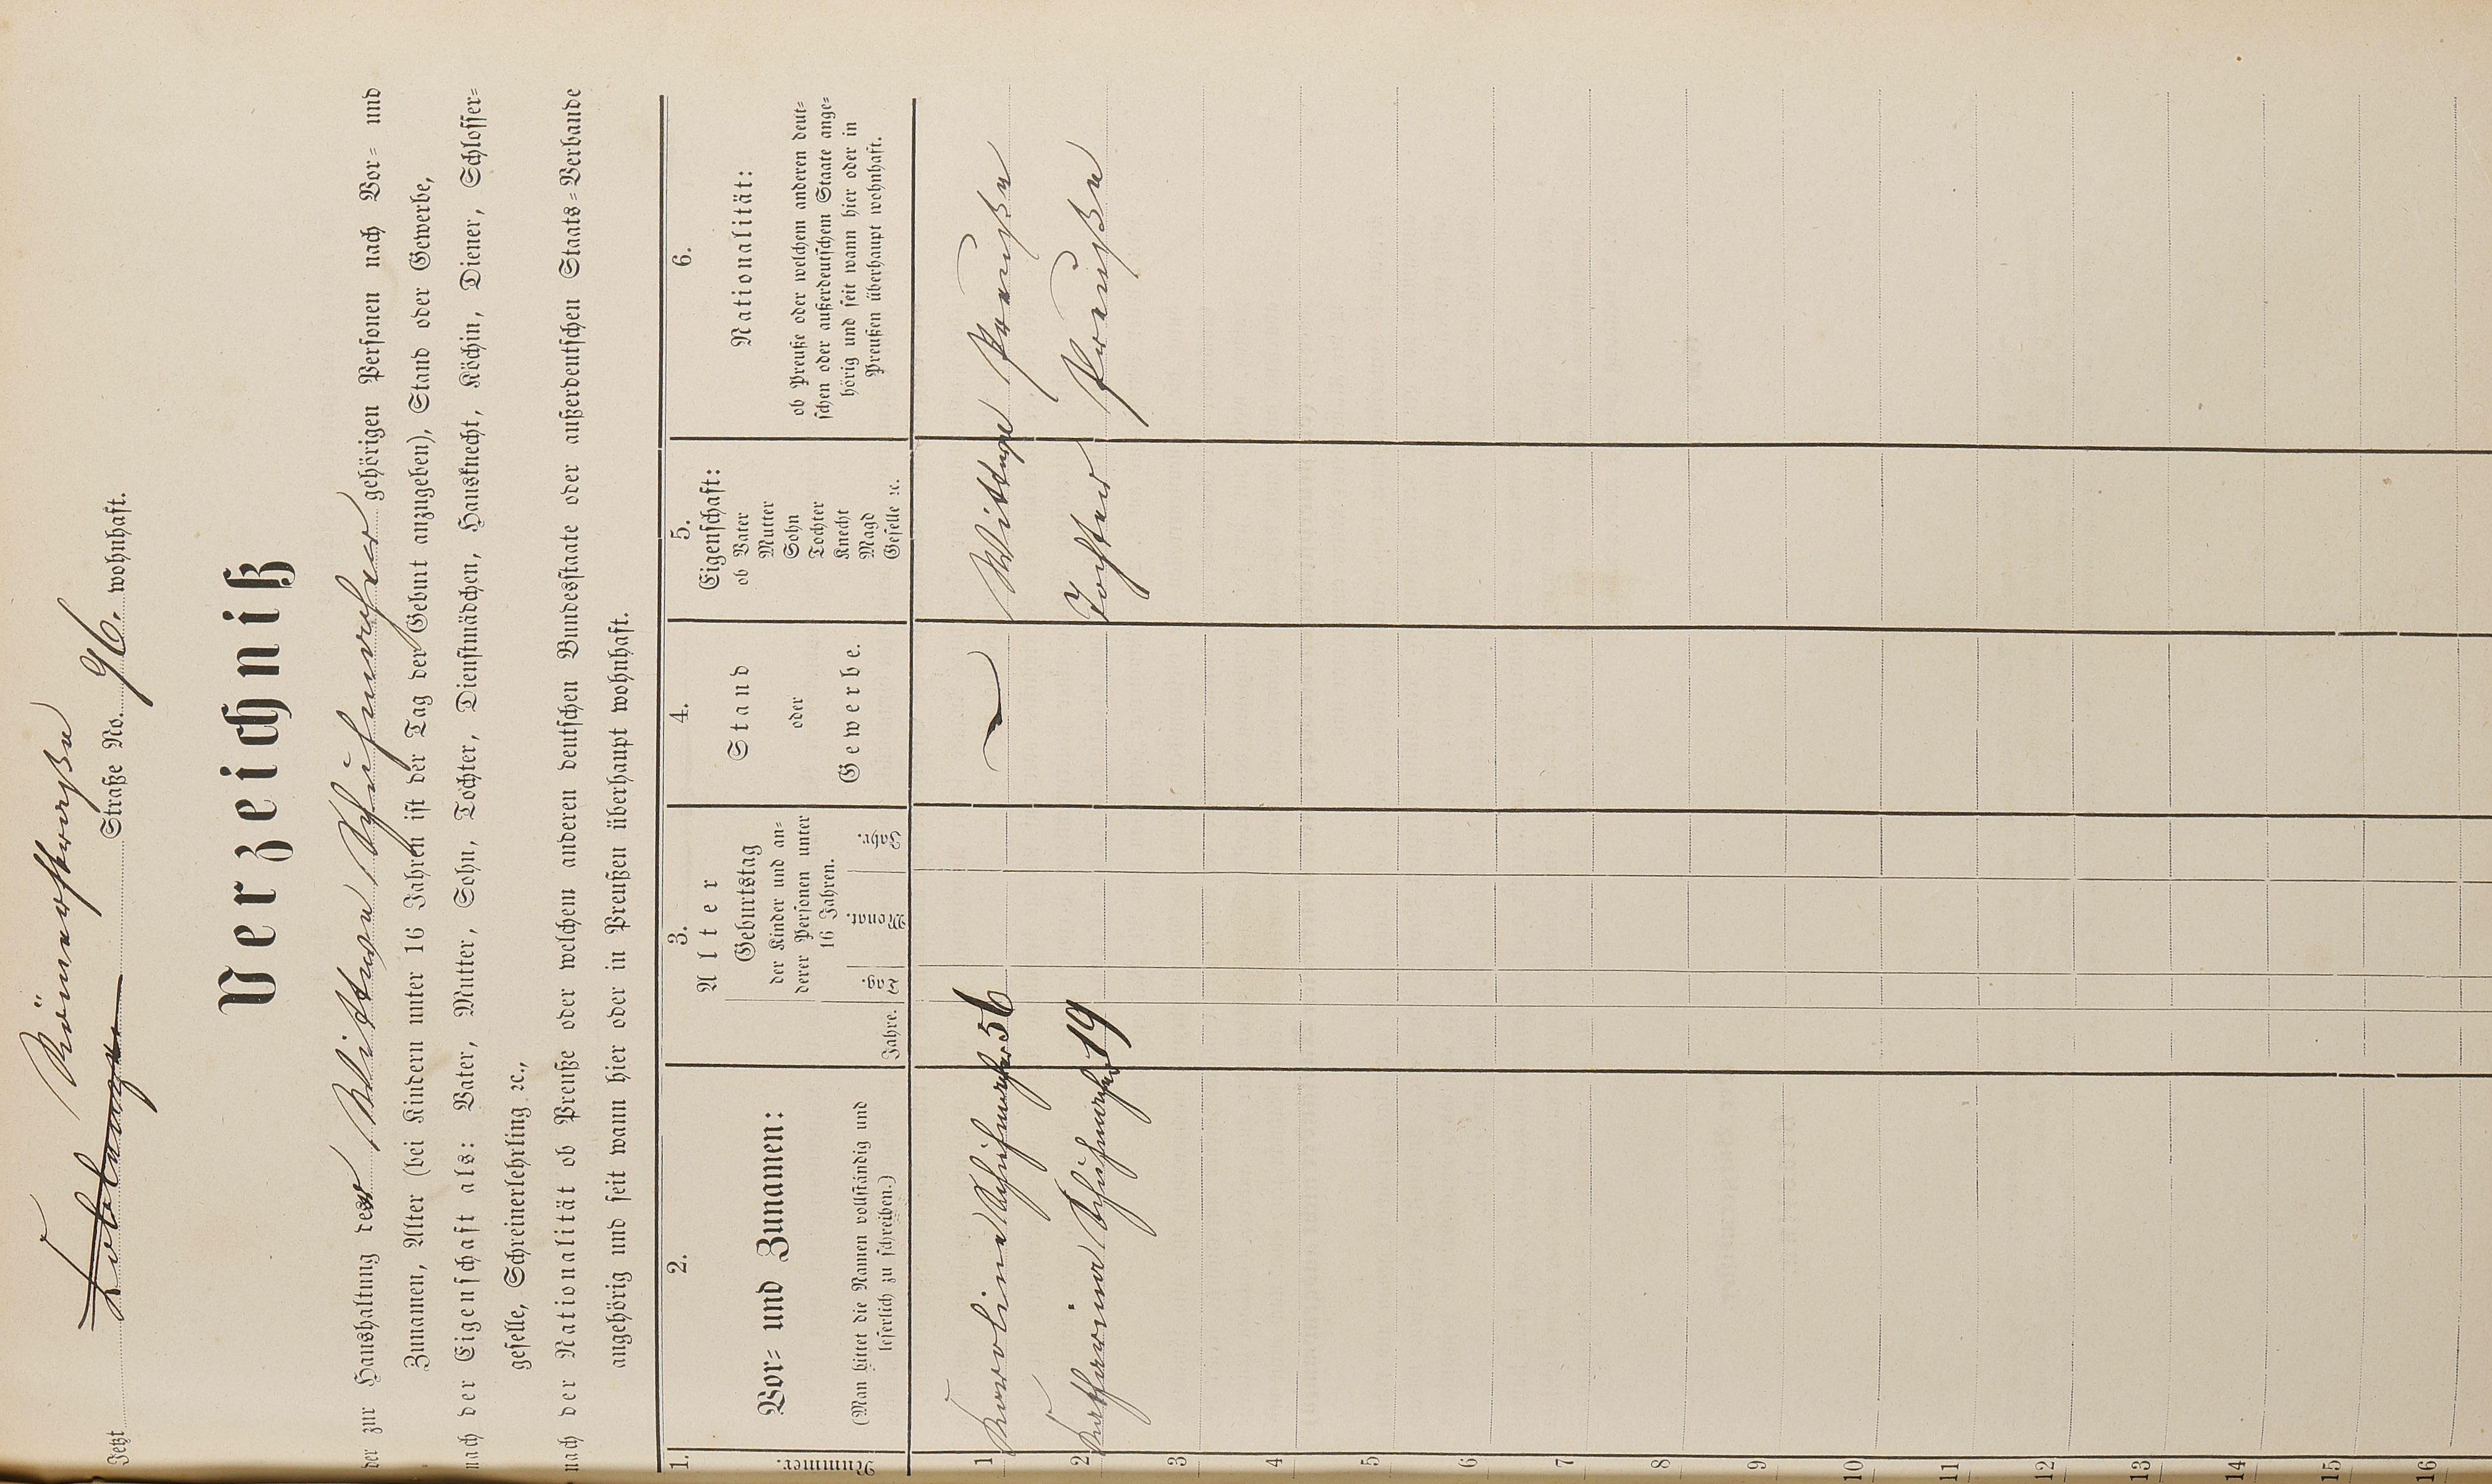 Römerstraße
Jetzt Straße No. 96. wohnhaft.
Verzeichniß
der zur Haushaltung der Wittwe gehörigen Personen nach Vor= und
Zunamen, Alter (bei Kindern unter 16 Jahren ist der Tag der Geburt anzugeben), Stand oder Gewerbe,
nach der Eigenschaft als: Vater, Mutter, Sohn, Tochter, Dienstmädchen, Hausknecht, Köchin, Diener, Schlosser=
geselle, Schreinerlehrling ꝛc.,
nach der Nationalität ob Preuße oder welchem anderen deutschen Bundesstaate oder außerdeutschen Staats=Verbande
angehörig und seit wann hier oder in Preußen überhaupt wohnhaft.
1. 2. 3. 4. 5. 6.
Nummer.
Vor= und Zunamen:
(Man bittet die Namen vollständig und
leserlich zu schreiben.)
Alter
Jahre.
Geburtstag
der Kinder und an=
derer Personen unter
16 Jahren.
Tag. Monat. Jahr.
Stand
oder
Gewerbe.
Eigenschaft:
ob Vater
Mutter
Sohn
Tochter
Knecht
Magd
Geselle ꝛc.
Nationalität:
ob Preuße oder welchem anderen deut=
schen oder außerdeutschen Staate ange=
hörig und seit wann hier oder in
Preußen überhaupt wohnhaft.
1 Karolina 56 Wittwe Preuße
2 Katharina 19 Tochter Preuße
3
4
5
6
7
8
9
10
11
12
13
14
15
16